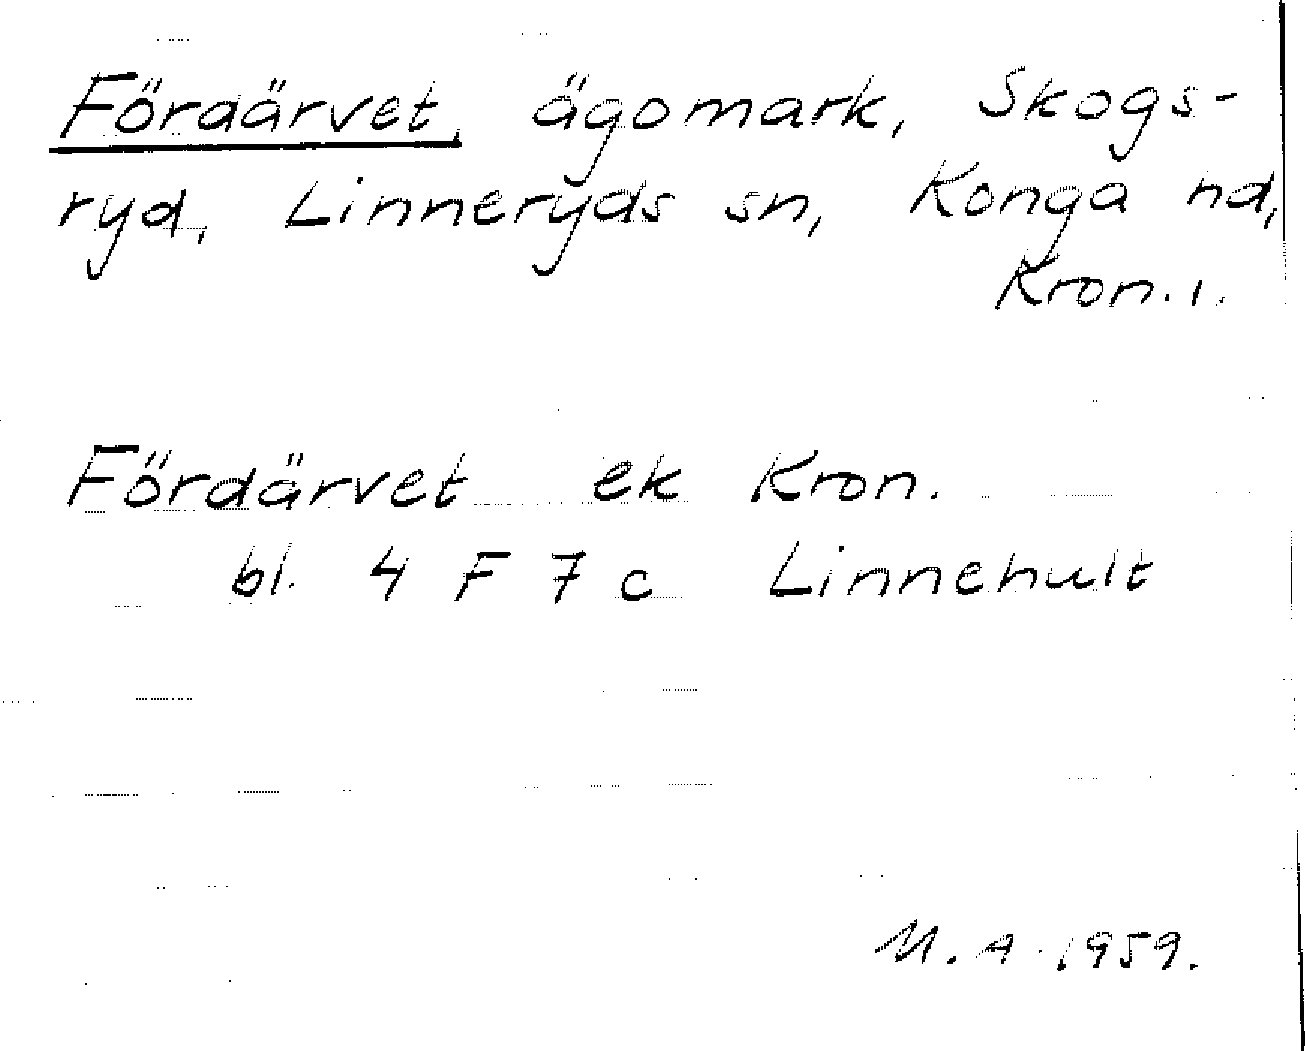 Fördärvet, ägomark, Skogs-
ryd, Linneryds sn, Konga hd,
Kron. l.
Fördärvet ek Kron.
bl. 4 F 7 c Linnehult
M. A. 1959.